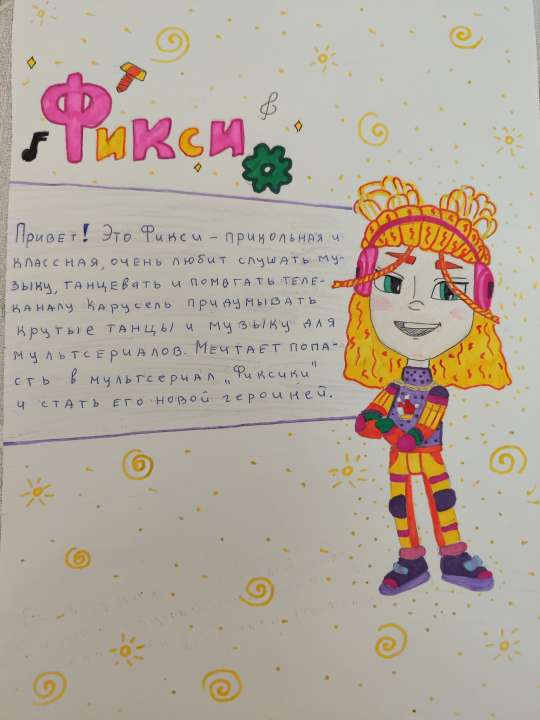 Фикси
Привет! Это Фикси – прикольная и
классная, очень любит слушать му-
зыку, танцевать и помогать теле-
каналу Карусель придумывать
крутые танцы и музыку для
мультсериалов. Мечтает попа-
сть в мультсериал „Фиксики"
и стать его новой героиней.